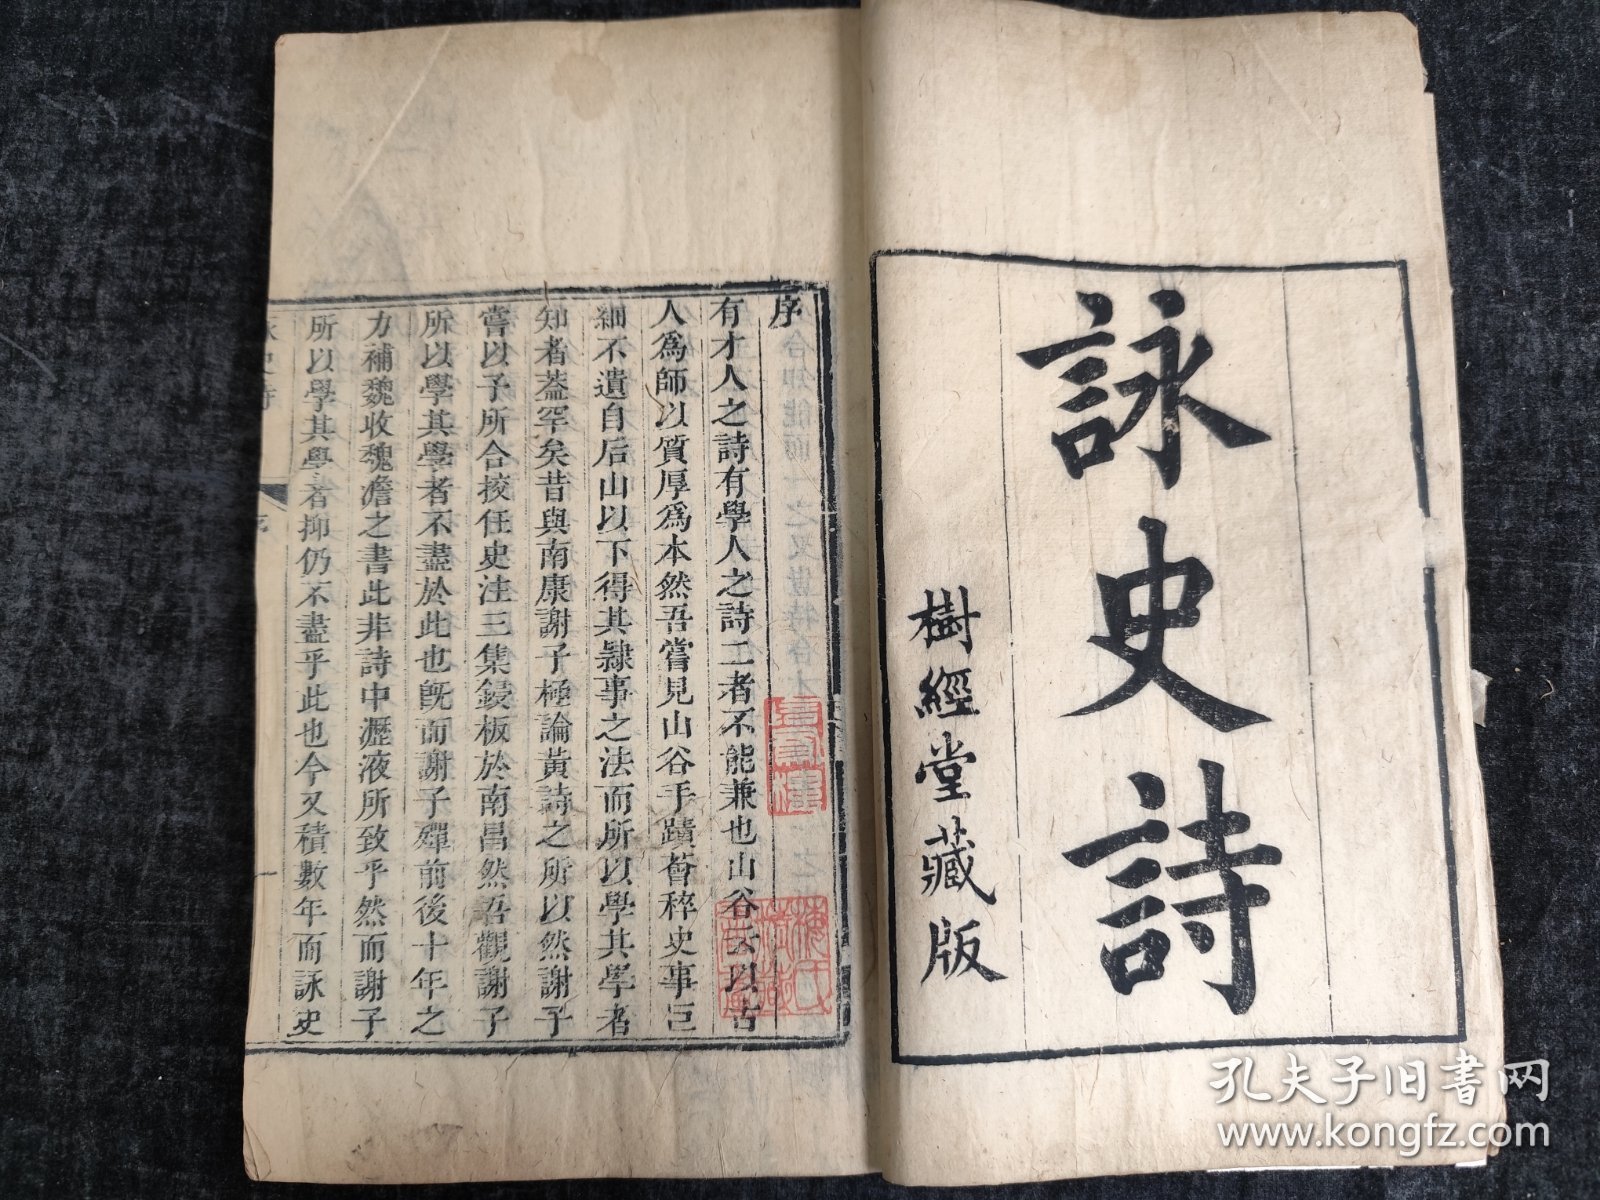 詠史詩
樹經堂藏版
序
有才人之詩有學人之詩二者不能兼也山谷云以古
人爲師以質厚爲本然吾嘗見山谷手蹟薈稡史事巨
細不遺自后山以下得其隸事之法而所以學其學者
知者葢罕矣昔與南康謝子極論黃詩之所以然謝子
嘗以予所合挍任史注三集鋟板於南昌然吾觀謝子
所以學其學者不盡於此也旣而謝子殫前後十年之
力補魏收魏澹之書此非詩中瀝液所致乎然而謝子
所以學其學者抑仍不盡乎此也今又積數年而詠史
詠史詩
序
孔夫子旧書网
www.kongfz.com